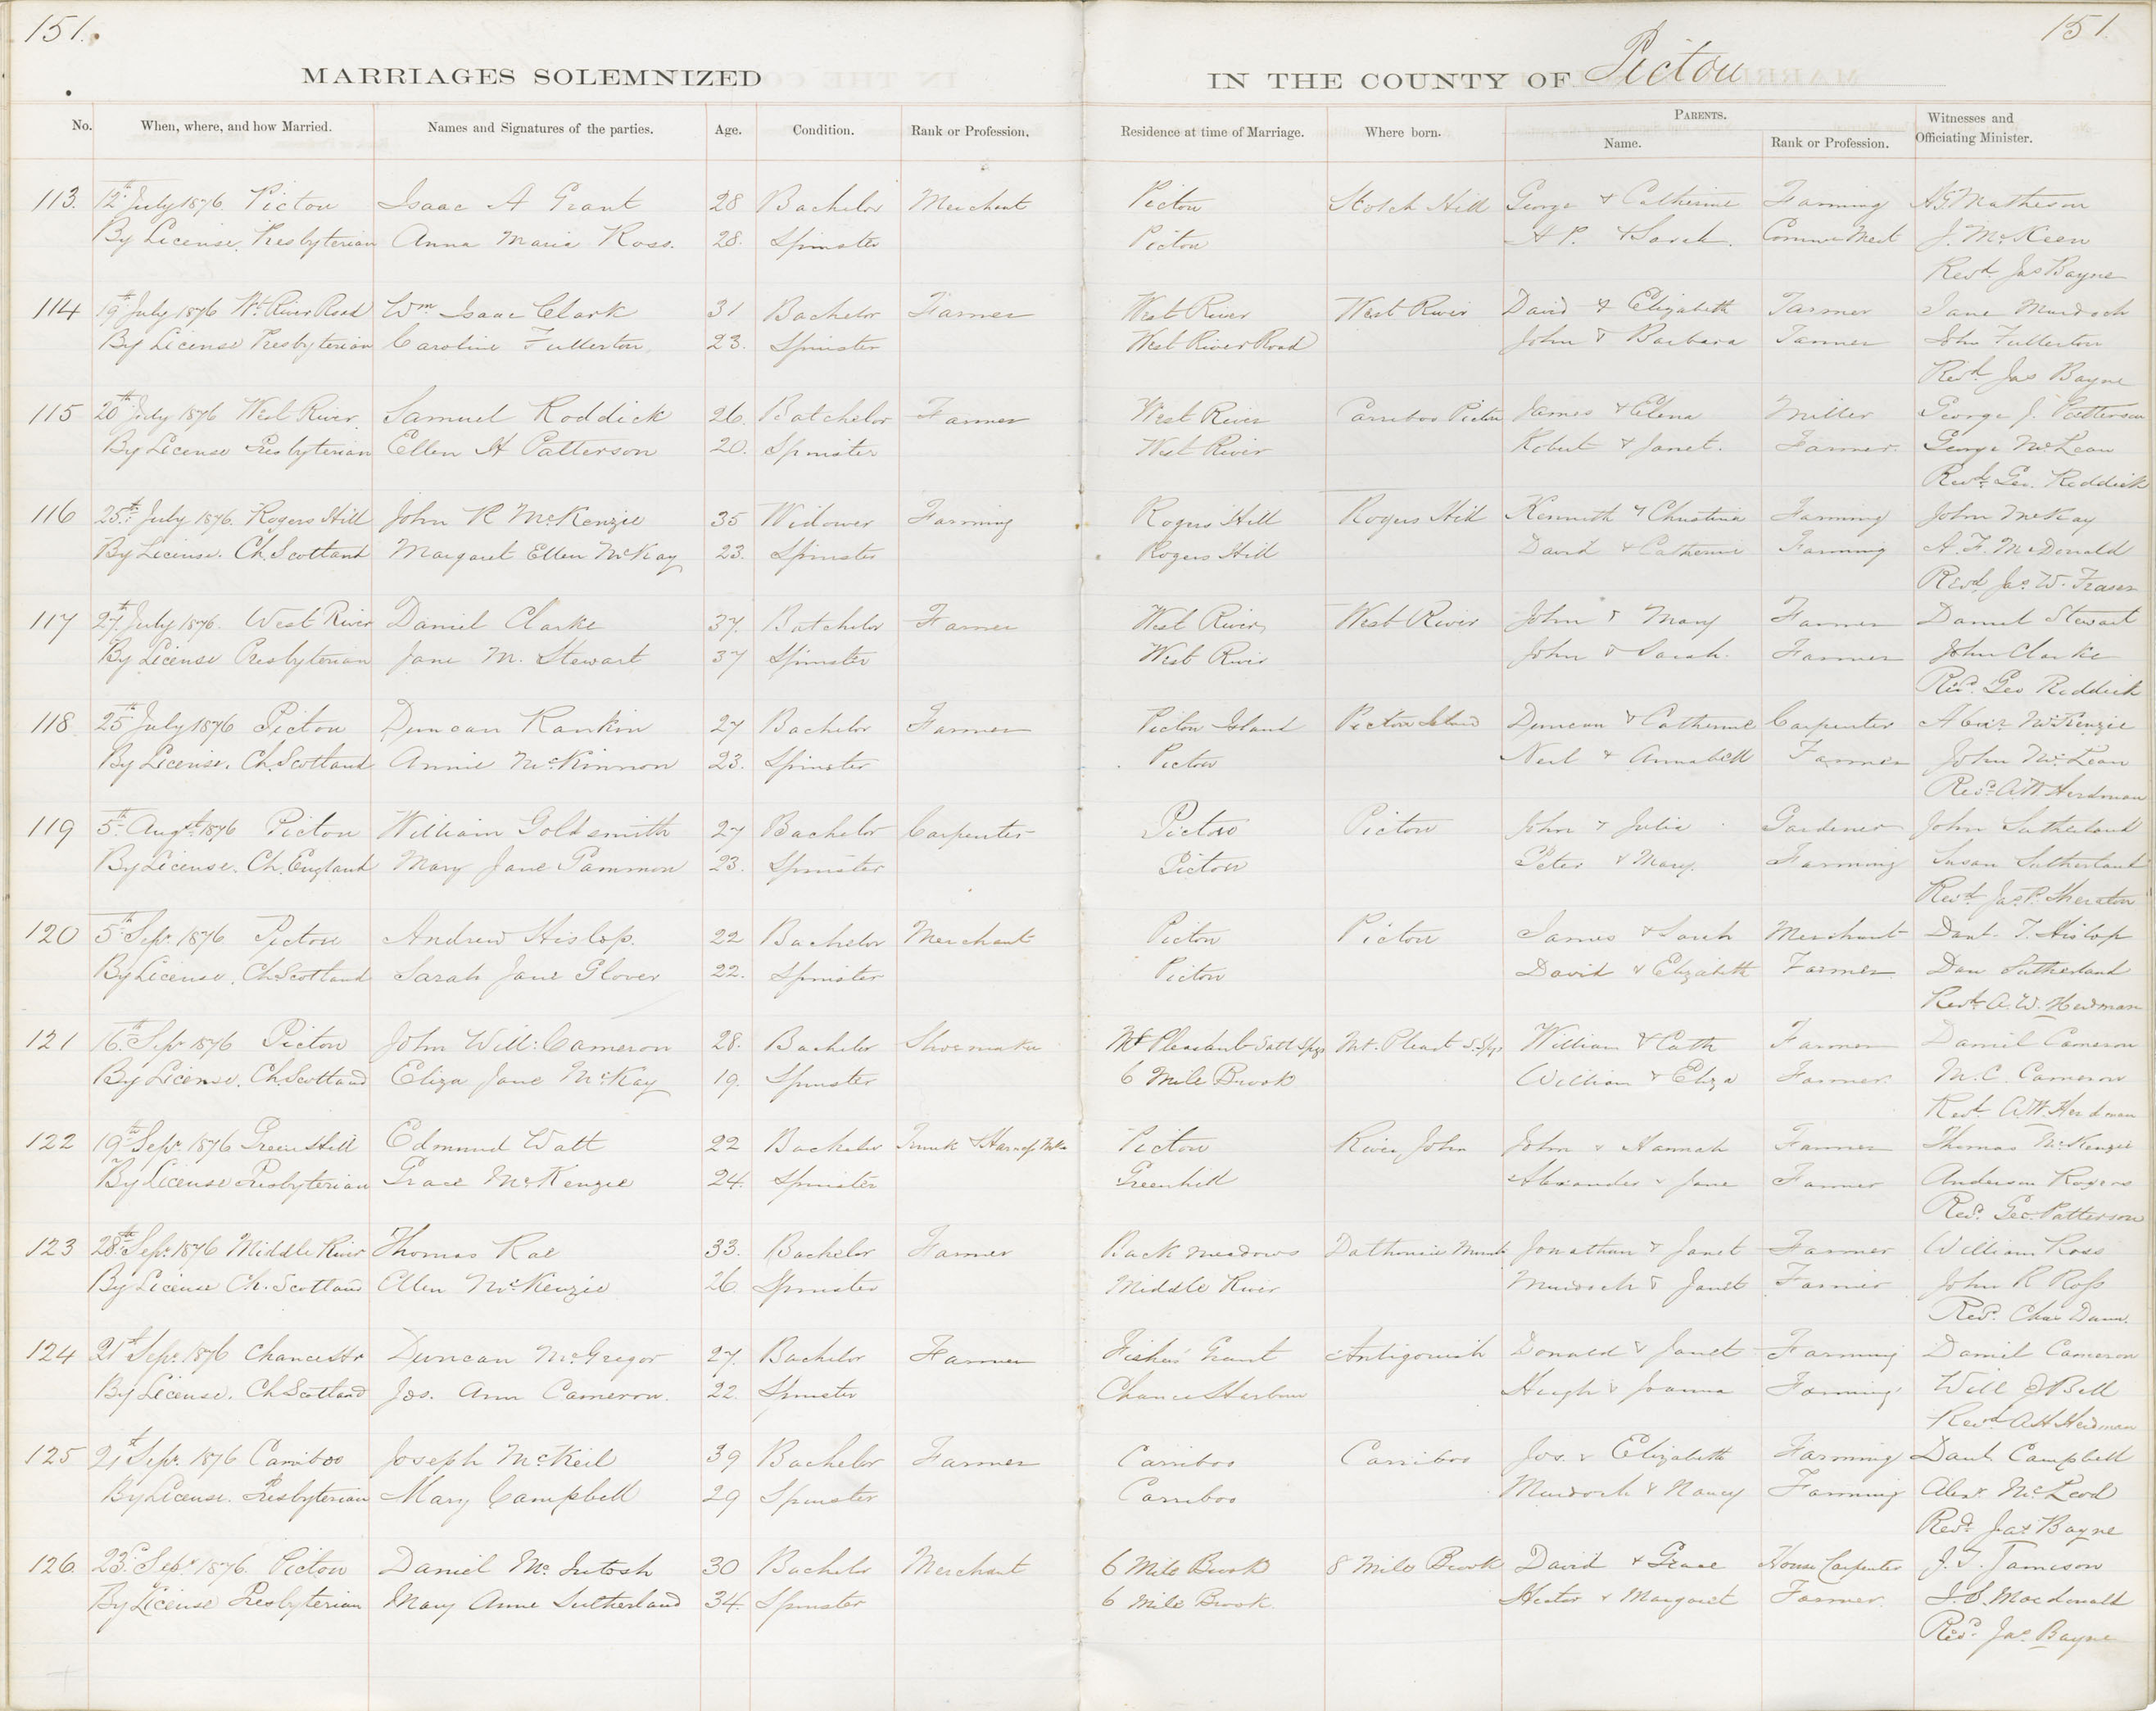 151.
151.
MARRIAGES SOLEMNIZED IN THE COUNTY OF Pictou
No. When, where, and how Married. Names and Signatures of the parties. Age. Condition. Rank or Profession. Residence at time of Marriage. Where born. PARENTS. Name. Rank or Profession. Witnesses and Officiating Minister.
113. 12th July 1876 Pictou Isaac A Grant 28 Bachelor Merchant Pictou Scotch Hill George & Catherine Farming Matheson
By License. Presbyterian Anna Maria Ross. 28. Spinster Pictou A P. & Sarah. J. McKeen
Revd Jas Bayne
114 19th July 1876 Wt River Road Wm Isaac Clark 31 Bachelor Farmer West River West River David & Elizabeth Farmer Jane Murdoch
By License Presbyterian Caroline Fullerton. 23. Spinster West River Road John & Barbara Farmer John Fullerton
Revd Jas Bayne
115 20th July 1876 West River. Samuel Roddick 26. Batchelor Farmer West River Carriboo Pictou James & Elena Miller George J. Patterson
By License Presbyterian Ellen H Patterson 20. Spinster West River Robert & Janet. Farmer. George McLean
Revd Geo. Roddick
116 25th July 1876. Rogers Hill John R McKenzie 35 Widower Farming Rogers Hill Rogers Hill Kenneth & Christina Farming John McKay
By License. Ch. Scotland Margaret Ellen McKay 23. Spinster Rogers Hill David & Catherine Farming A. F. McDonald
Revd Jas. W. Fraser
117 27th July 1876. West River Daniel Clarke 37. Batchelor Farmer West River West River John & Mary Farmer Daniel Stewart
By License Presbyterian Jane M. Stewart 37 Spinster West River John & Sarah. Farmer John Clarke
Revd. Geo Roddick
118 25th July 1876 Pictou Duncan Rankin 27 Bachelor Farmer Pictou Island Pictou Island Duncan & Catherine Carpenter McKenzie
By License. Ch. Scotland Annie McKinnon 23. Spinster Pictou Neil & Annabell Farmer John McLean
Revd. A W Herdman
119 5th Augst 1876 Pictou William Goldsmith 27 Bachelor Carpenter Pictou Pictou John & Julia Gardener John Sutherland
By License. Ch. England Mary Jane Pammon 23. Spinster Pictou Peter & Mary. Farming Susan Sutherland
Revd. Jas. P. Sheraton
120 5th Sepr. 1876 Pictou Andrew Hislop. 22 Bachelor Merchant Pictou Pictou James & Sarah Merchant Danl. T. Hislop
By License. Ch. Scotland Sarah Jane Glover 22. Spinster Pictou David & Elizabeth Farmer Dan Sutherland
Revd. A. W. Herdman
121 16th Sepr 1876 Pictou John Will: Cameron 28. Bachelor Shoemaker Mt Pleasant Salt Spgs Mt. Pleasnt S. Spgs William & Cath Farmer Daniel Cameron
By License. Ch. Scotland Eliza Jane McKay 19. Spinster 6 Mile Brook William & Eliza Farmer. M. C. Cameron
Revd. A W. Herdman
122 19th Sepr. 1876 Green Hill Edmund Watt 22 Bachelor Trunk & Harness Mkr Pictou River John John & Hannah Farmer Thomas McKenzie
By License Presbyterian Grace McKenzie 24. Spinster Greenhill Alexander & Jane Farmer Anderson Rogers
Revd. Geo. Patterson
123 28th Sepr 1876 Middle River Thomas Rae 33. Bachelor Farmer Back Meadows Jonathan & Janet Farmer William Ross
By License Ch. Scotland Ellen McKenzie 26. Spinster Middle River Murdoch & Janet Farmer John R Ross
Revd. Chas Dunn.
124 21st Sepr. 1876 Chance Hr Duncan McGregor 27. Bachelor Farmer Fishers Grant Antigonish Donald & Janet Farming Daniel Cameron
By License. Ch Scotland Jos. Ann Cameron. 22. Spinster Chance Harbour Hugh & Joanna Farming Will Bell
Revd A W Herdman
125 21st Sepr. 1876 Carriboo Joseph McKeil 39 Bachelor Farmer Carriboo Carriboo Jos. & Elizabeth Farming Danl. Campbell
By License. Presbyterian Mary Campbell 29 Spinster Carriboo Murdoch & Nancy Farming Alexr. McLeod
Revd. Jas Bayne
126. 23d. Sepr. 1876. Pictou Daniel McIntosh 30 Bachelor Merchant 6 Mile Brook 8 Mile Brook David & Grace House Carpenter J. T. Jamison
By License Presbyterian Mary Anne Sutherland 34. Spinster 6 Mile Brook. Hector & Margaret Farmer. J. S. Macdonald
Revd. Jas. Bayne